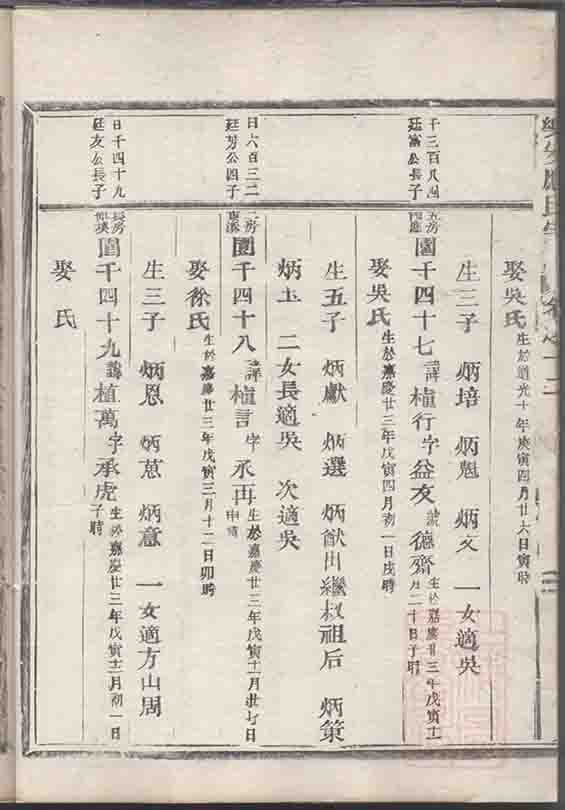 娶吳氏 生於道光十年庚寅四月廿六日寅時
生三子 炳培 炳魁 炳文 一女適吳
千三百八四
廷富公長子
五房
圓千四十七 諱植行 字益友 號德齋 生於嘉慶廿三年戊寅十二月二十日子時
娶吳氏 生於嘉慶廿三年戊寅四月初一日戌時
生五子 炳獻 炳選 炳猷出繼叔祖后 炳策
炳玉 二女長適吳 次適吳
日六百三二
廷芳公四子
二房
圓千四十八 諱植言 字承再 生於嘉慶廿三年戊寅十一月廿七日申時
娶徐氏 生於嘉慶廿三年戊寅三月十二日卯時
生三子 炳恩 炳蒽 炳意 一女適方山周
日千四十九
廷友公長子
長房
圓千四十九 諱植萬 字承虎 生於嘉慶廿三年戊寅十二月初一日子時
娶 氏